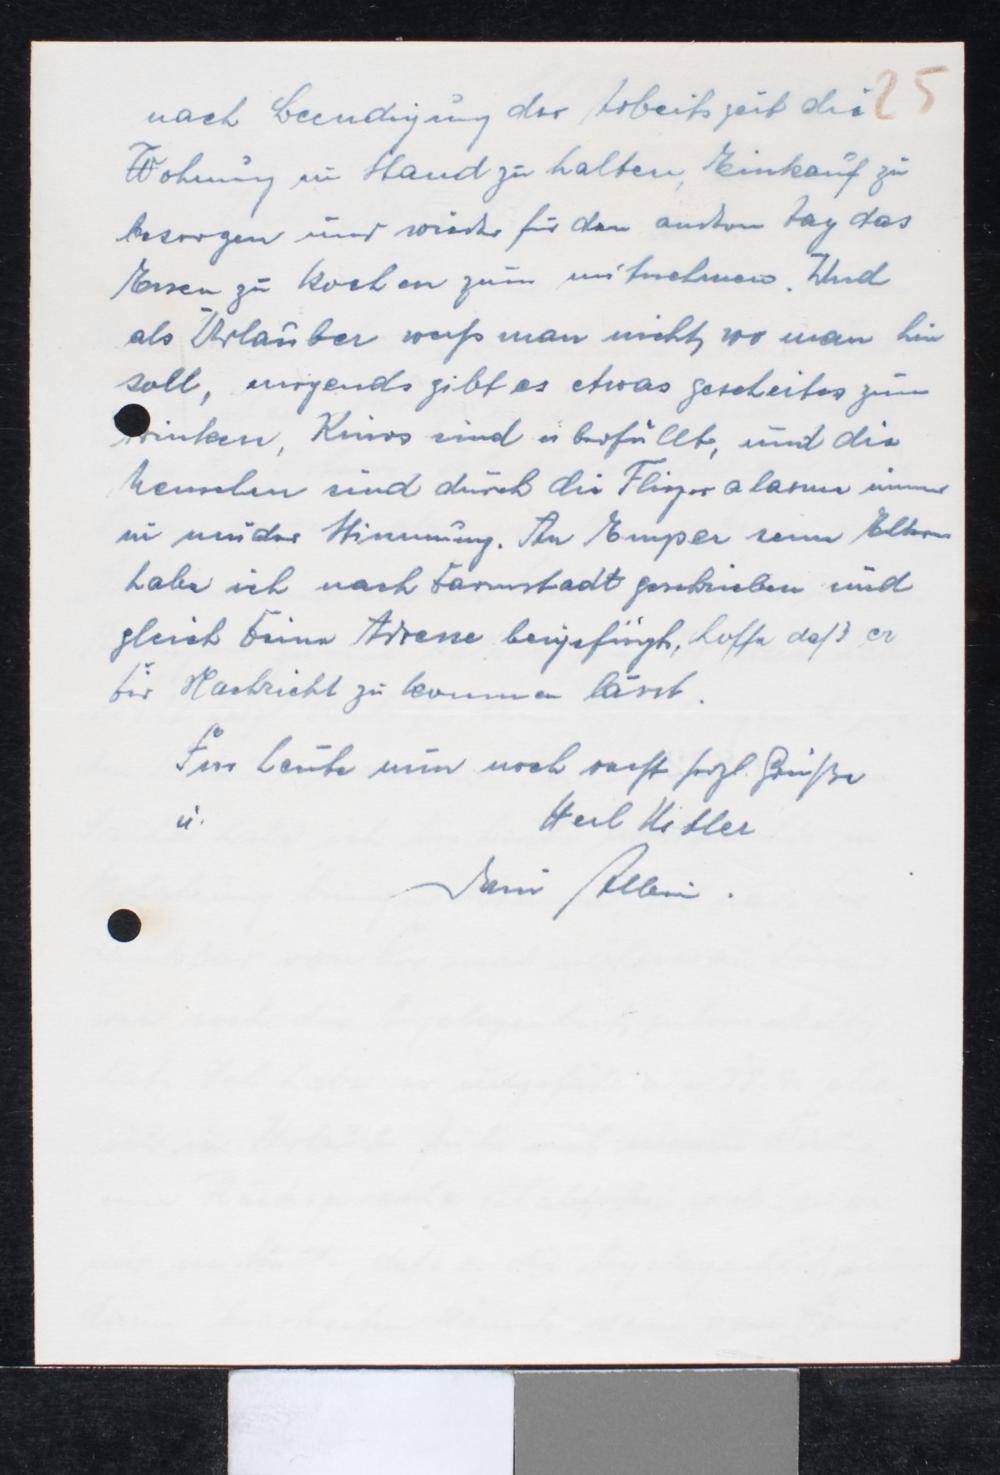 25
nach Beendigung der Arbeitszeit die
Wohnung in Stand zu halten, Einkauf zu
besorgen und wieder für den andern Tag das
Essen zu kochen zum mitnehmen. Und
als Urlauber weiß man nicht, wo man hin
soll, nirgends gibt es etwas gescheites zum
trinken, Kinos sind überfüllt, und die
Menschen sind durch die Fliegeralarme immer
in müder Stimmung. An seine Eltern
habe ich nach Darmstadt geschrieben und
gleich Deine Adresse beigefügt, hoffe daß er
Dir Nachricht zu kommen lässt.
Für heute nun noch recht herzl. Grüße
u. Heil Hitler
Dein